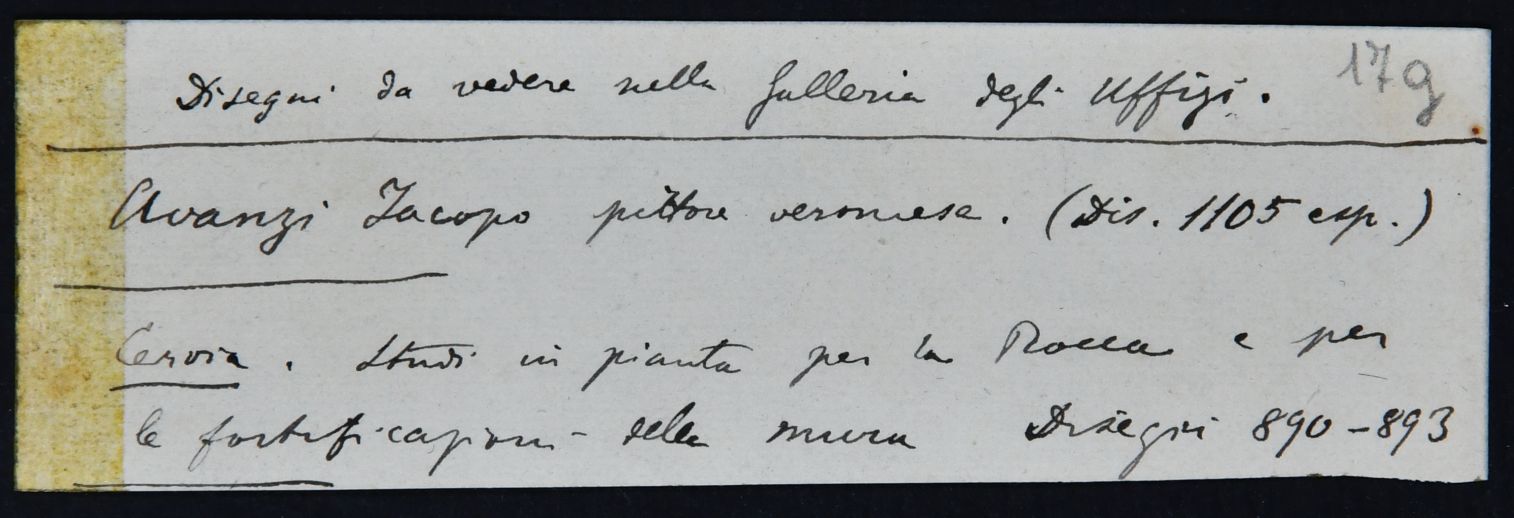 17g
Disegni da vedere nella Galleria degli Uffizi.
Avanzi Jacopo pittore veronese. (Dis. 1105 esp.)
Cervia. Studi in pianta per la Rocca e per
le fortificazioni della mura Disegni 890-893